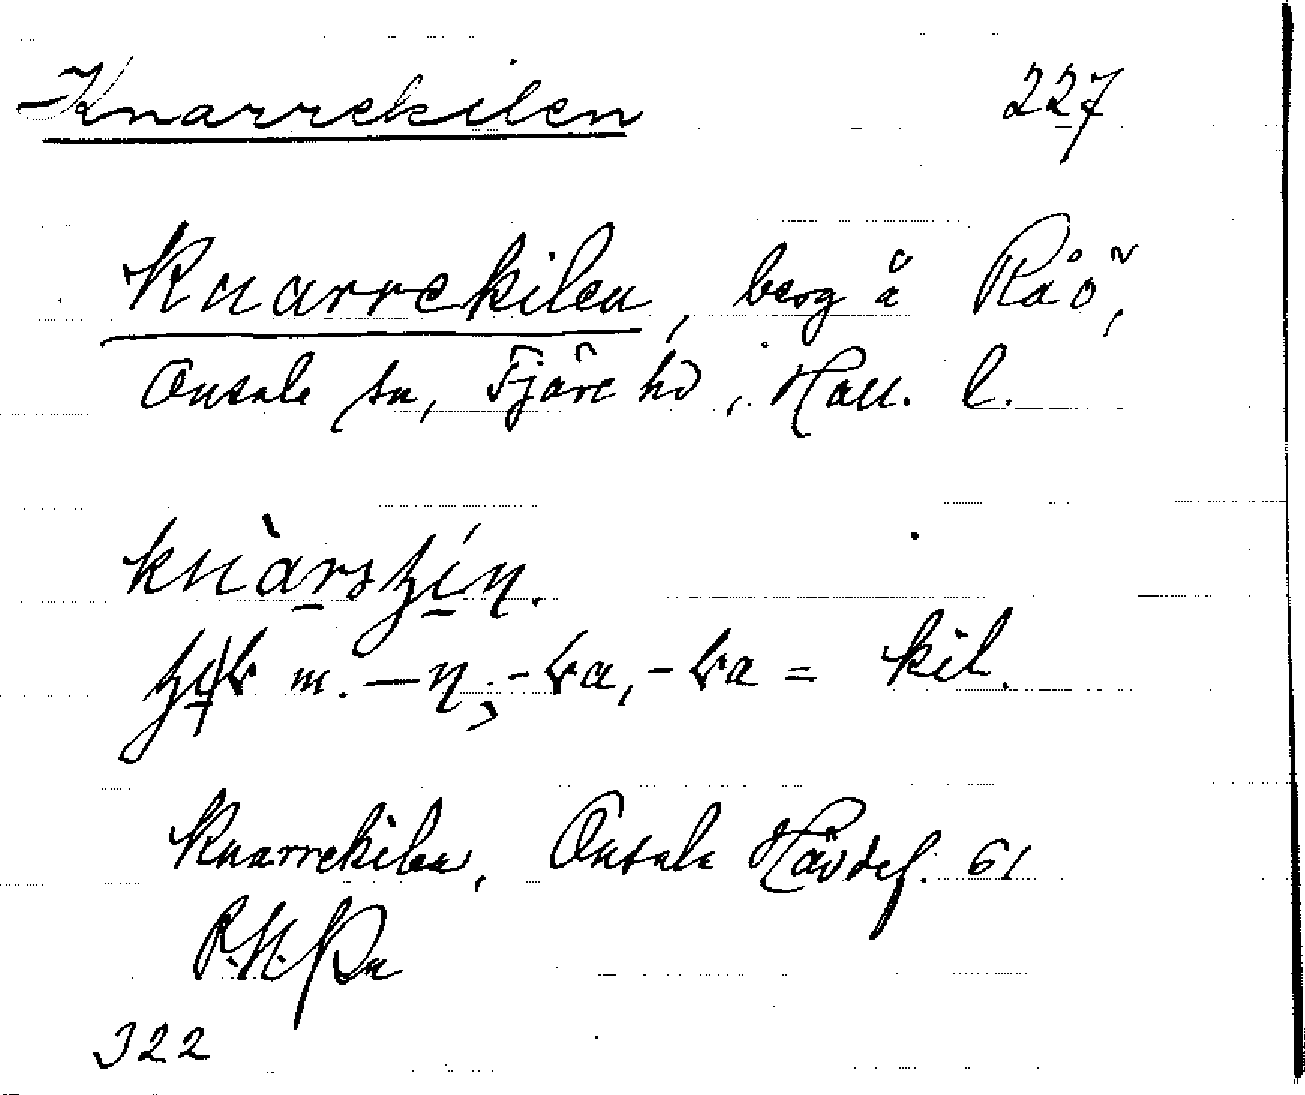 Knarrekilen 227
Knarrekilen, berg å Råö,
Onsala sn, Fjäre hd, Hall. l.
m. = kil.
Knarrekilen, Onsala Hävdef. 61
322